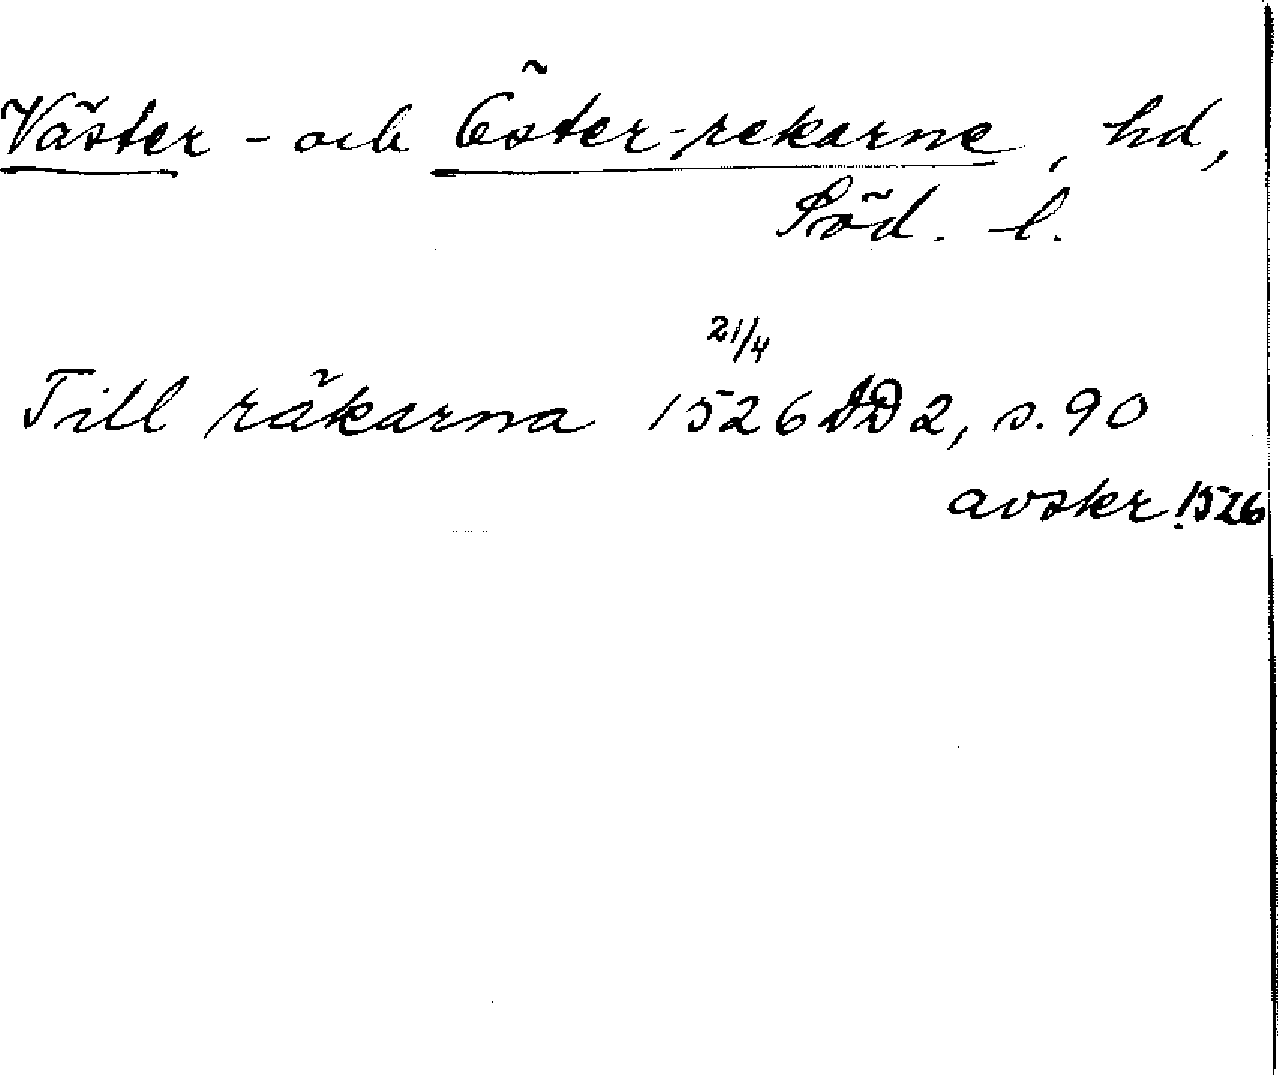 Väster - och Öster-rekarne, hd,
Söd. l.
21/4
Till räkarna 1526 DD 2, s. 90
avskr. 1526